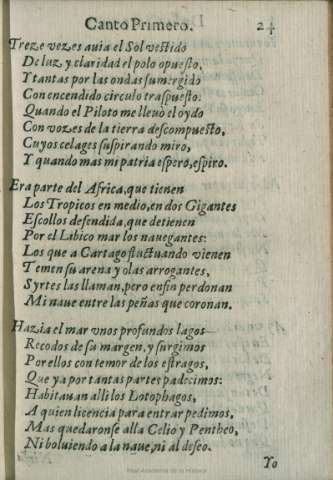 Canto Primero. 24
Treze vezes auia el Sol vestido
De luz, y claridad el polo opuesto,
Y tantas por las ondas sumergido
Con encendido circulo traspuesto:
Quando el Piloto me lleuò el oydo
Con vozes de la tierra descompuesto,
Cuyos celages suspirando miro,
Y quando mas mi patria espero, espiro.
Era parte del Africa, que tienen
Los Tropicos en medio, en dos Gigantes
Escollos defendida, que detienen
Por el Libico mar los nauegantes:
Los que a Cartago fluctuando vienen
Temen su arena y olas arrogantes,
Syrtes las llaman, pero enfin perdonan
Mi naue entre las peñas que coronan.
Hazia el mar vnos profundos lagos
Recodos de su margen, y surgimos
Por ellos con temor de los estragos,
Que ya por tantas partes padecimos:
Habitauan alli los Lotophagos,
A quien licencia para entrar pedimos,
Mas quedaronse alla Celio y Pentheo,
Ni boluiendo a la naue, ni al deseo.
Yo
Real Academia de la Historia